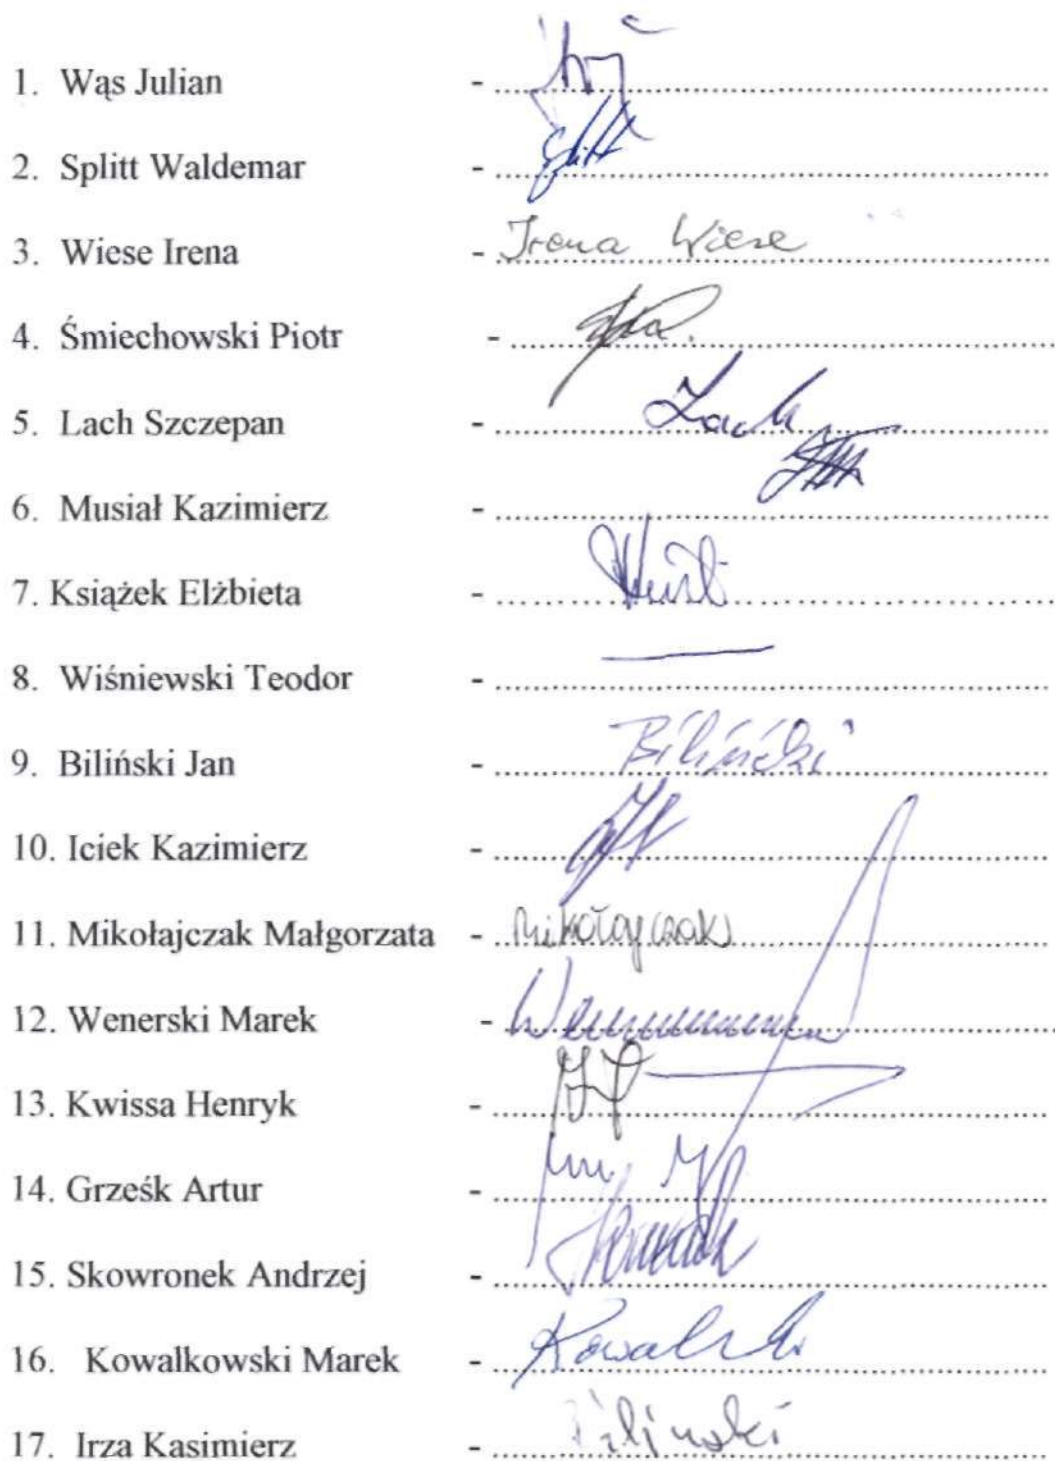 1. Wąs Julian -
2. Splitt Waldemar - Splitt
3. Wiese Irena - Irena Wiese
4. Śmiechowski Piotr -
5. Lach Szczepan - Lach
6. Musiał Kazimierz -
7. Książek Elżbieta -
8. Wiśniewski Teodor -
9. Biliński Jan - Biliński
10. Iciek Kazimierz -
11. Mikołajczak Małgorzata - Mikołajczak
12. Wenerski Marek -
13. Kwissa Henryk -
14. Grześk Artur -
15. Skowronek Andrzej -
16. Kowalkowski Marek -
17. Irza Kasimierz -